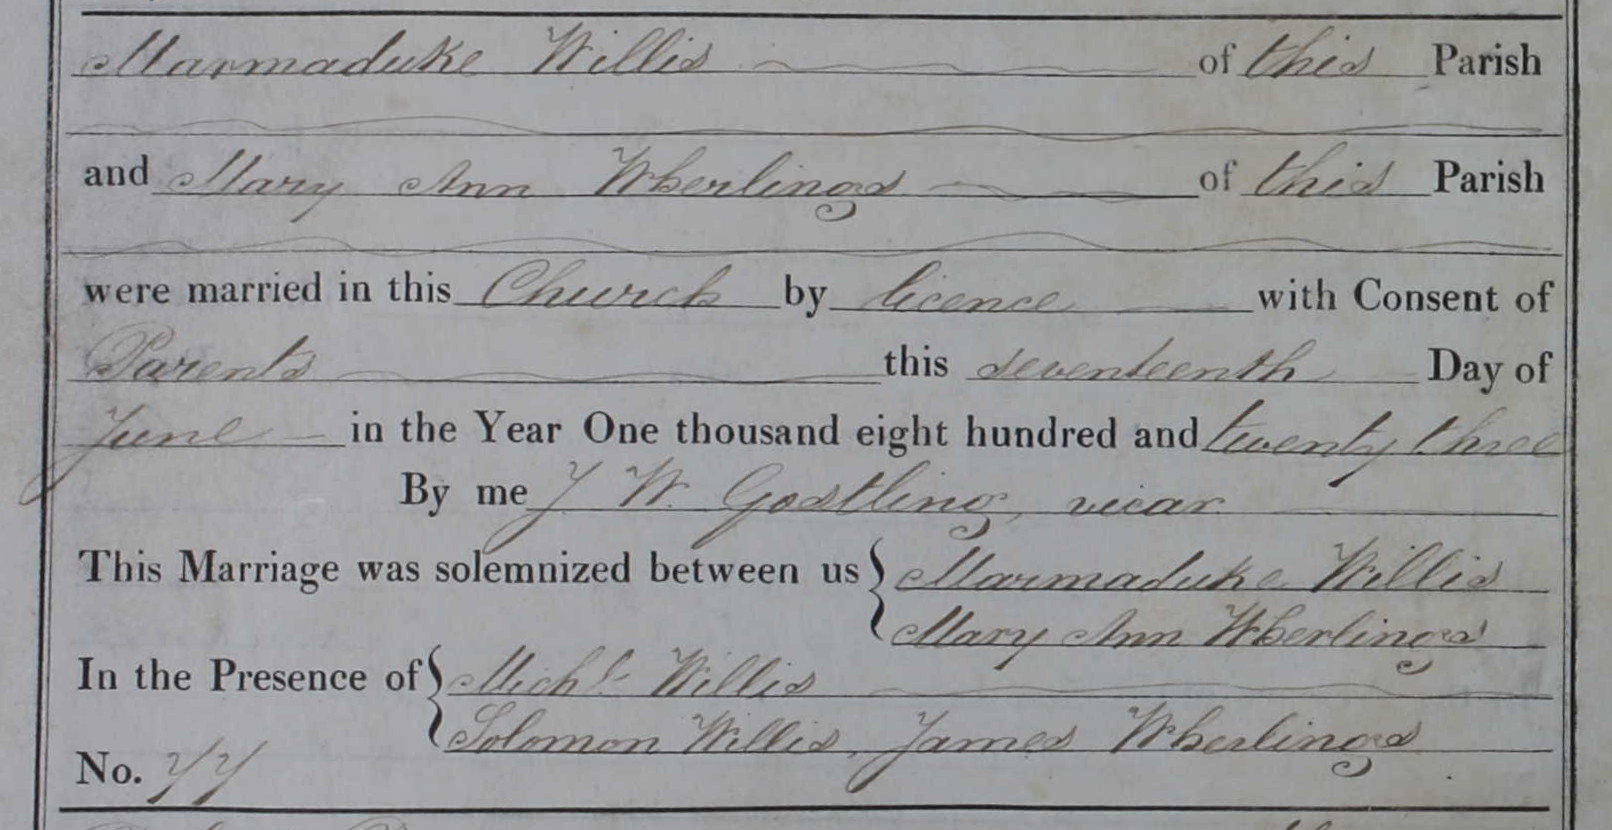 Marmaduke Willis of this Parish
and Mary Ann Wherlings of this Parish
were married in this Church by licence with Consent of
Parents this seventeenth Day of
June in the Year One thousand eight hundred and twenty three
By me J W. Gostling, vicar
This Marriage was solemnized between us Marmaduke Willis
Mary Ann Wherlings
In the Presence of Michl Willis
Solomon Willis, James Wherlings
No. 77